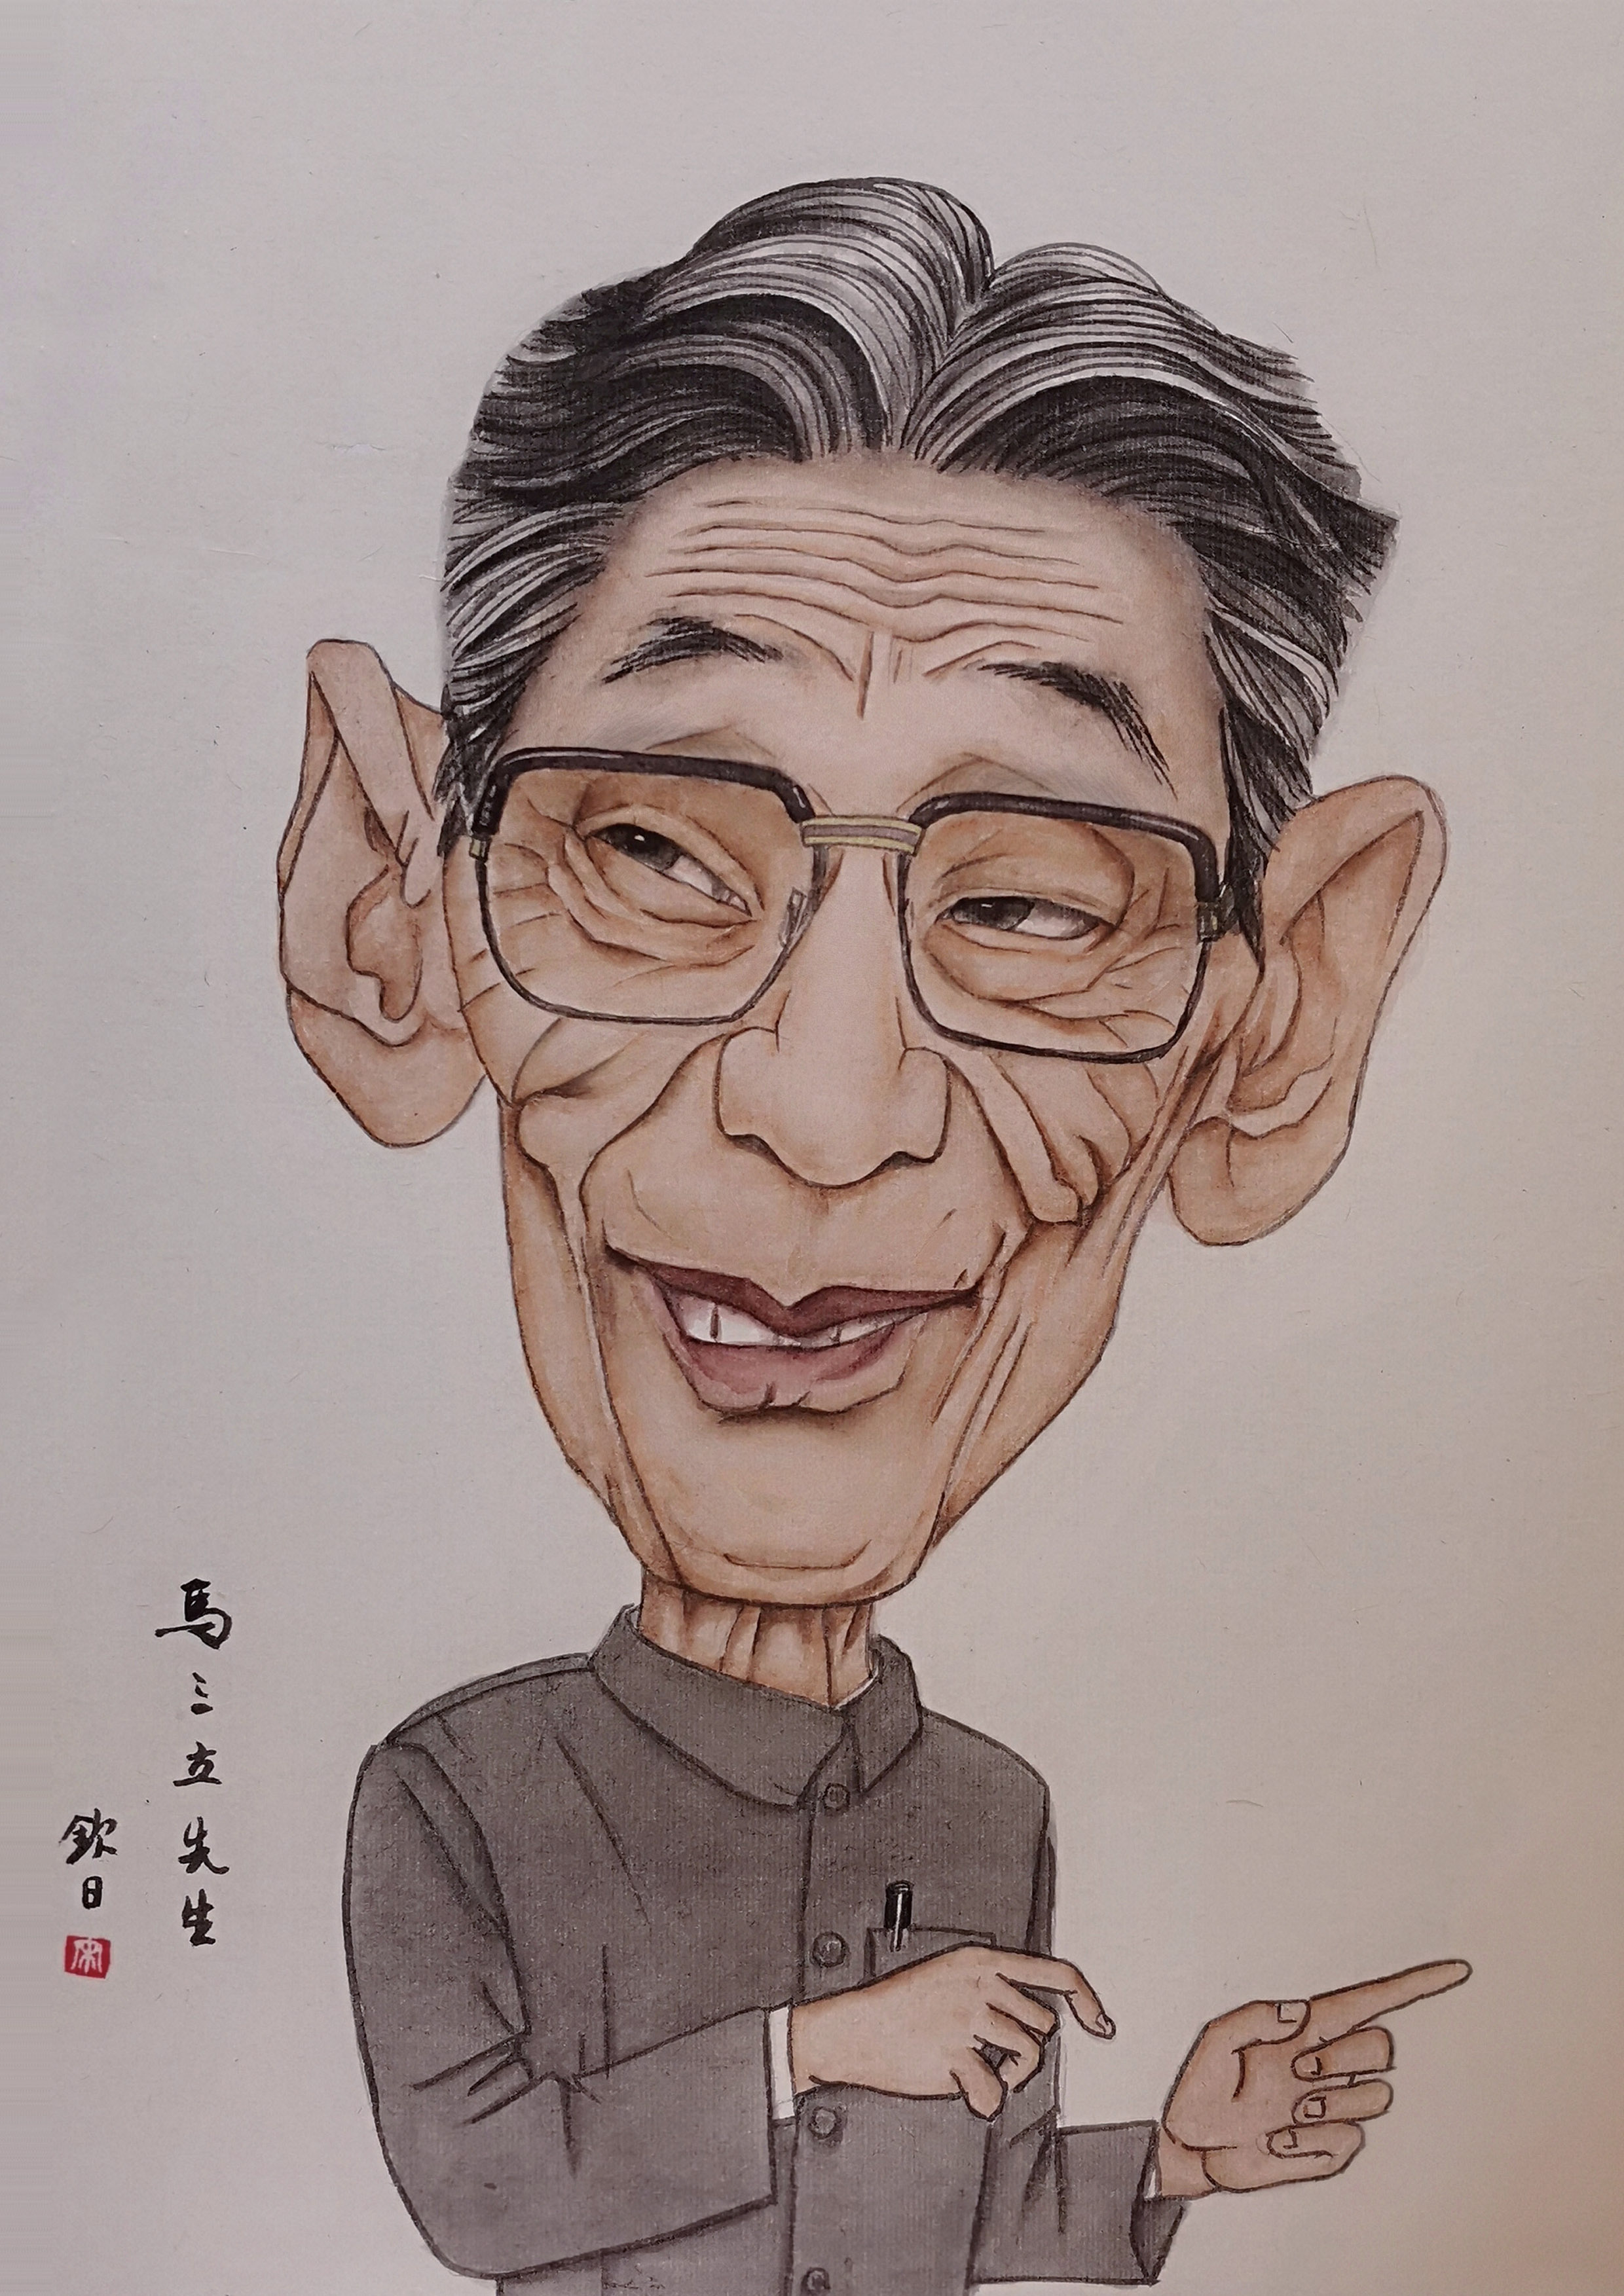 馬三立先生
欽日
宋